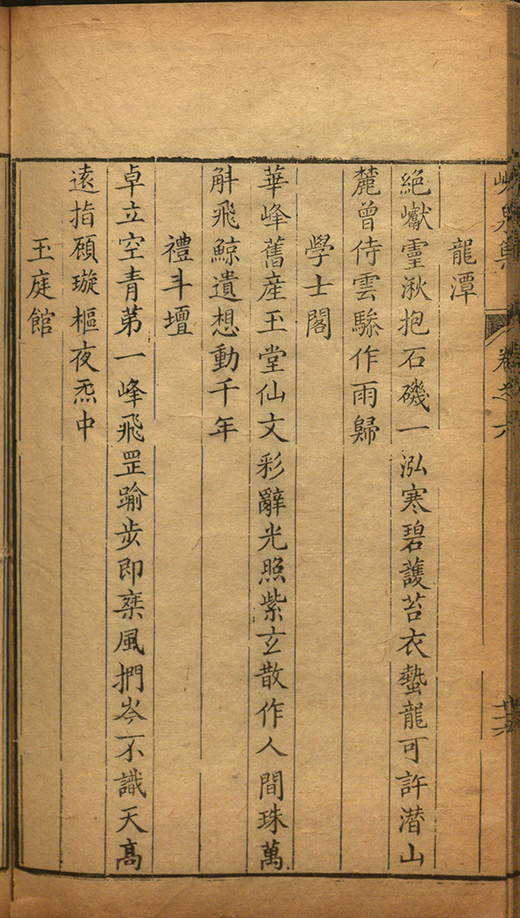 卷之六
龍潭
絶巘靈湫抱石磯一泓寒碧護苔衣蟄龍可許潛山
麓曾侍雲驂作雨歸
學士閣
華峰舊産玉堂仙文彩辭光照紫玄散作人間珠萬
斛飛鯨遺想動千年
禮斗壇
卓立空青第一峰飛罡踰步即乘風捫岑不識天高
遠指顧璇樞夜炁中
玉庭館